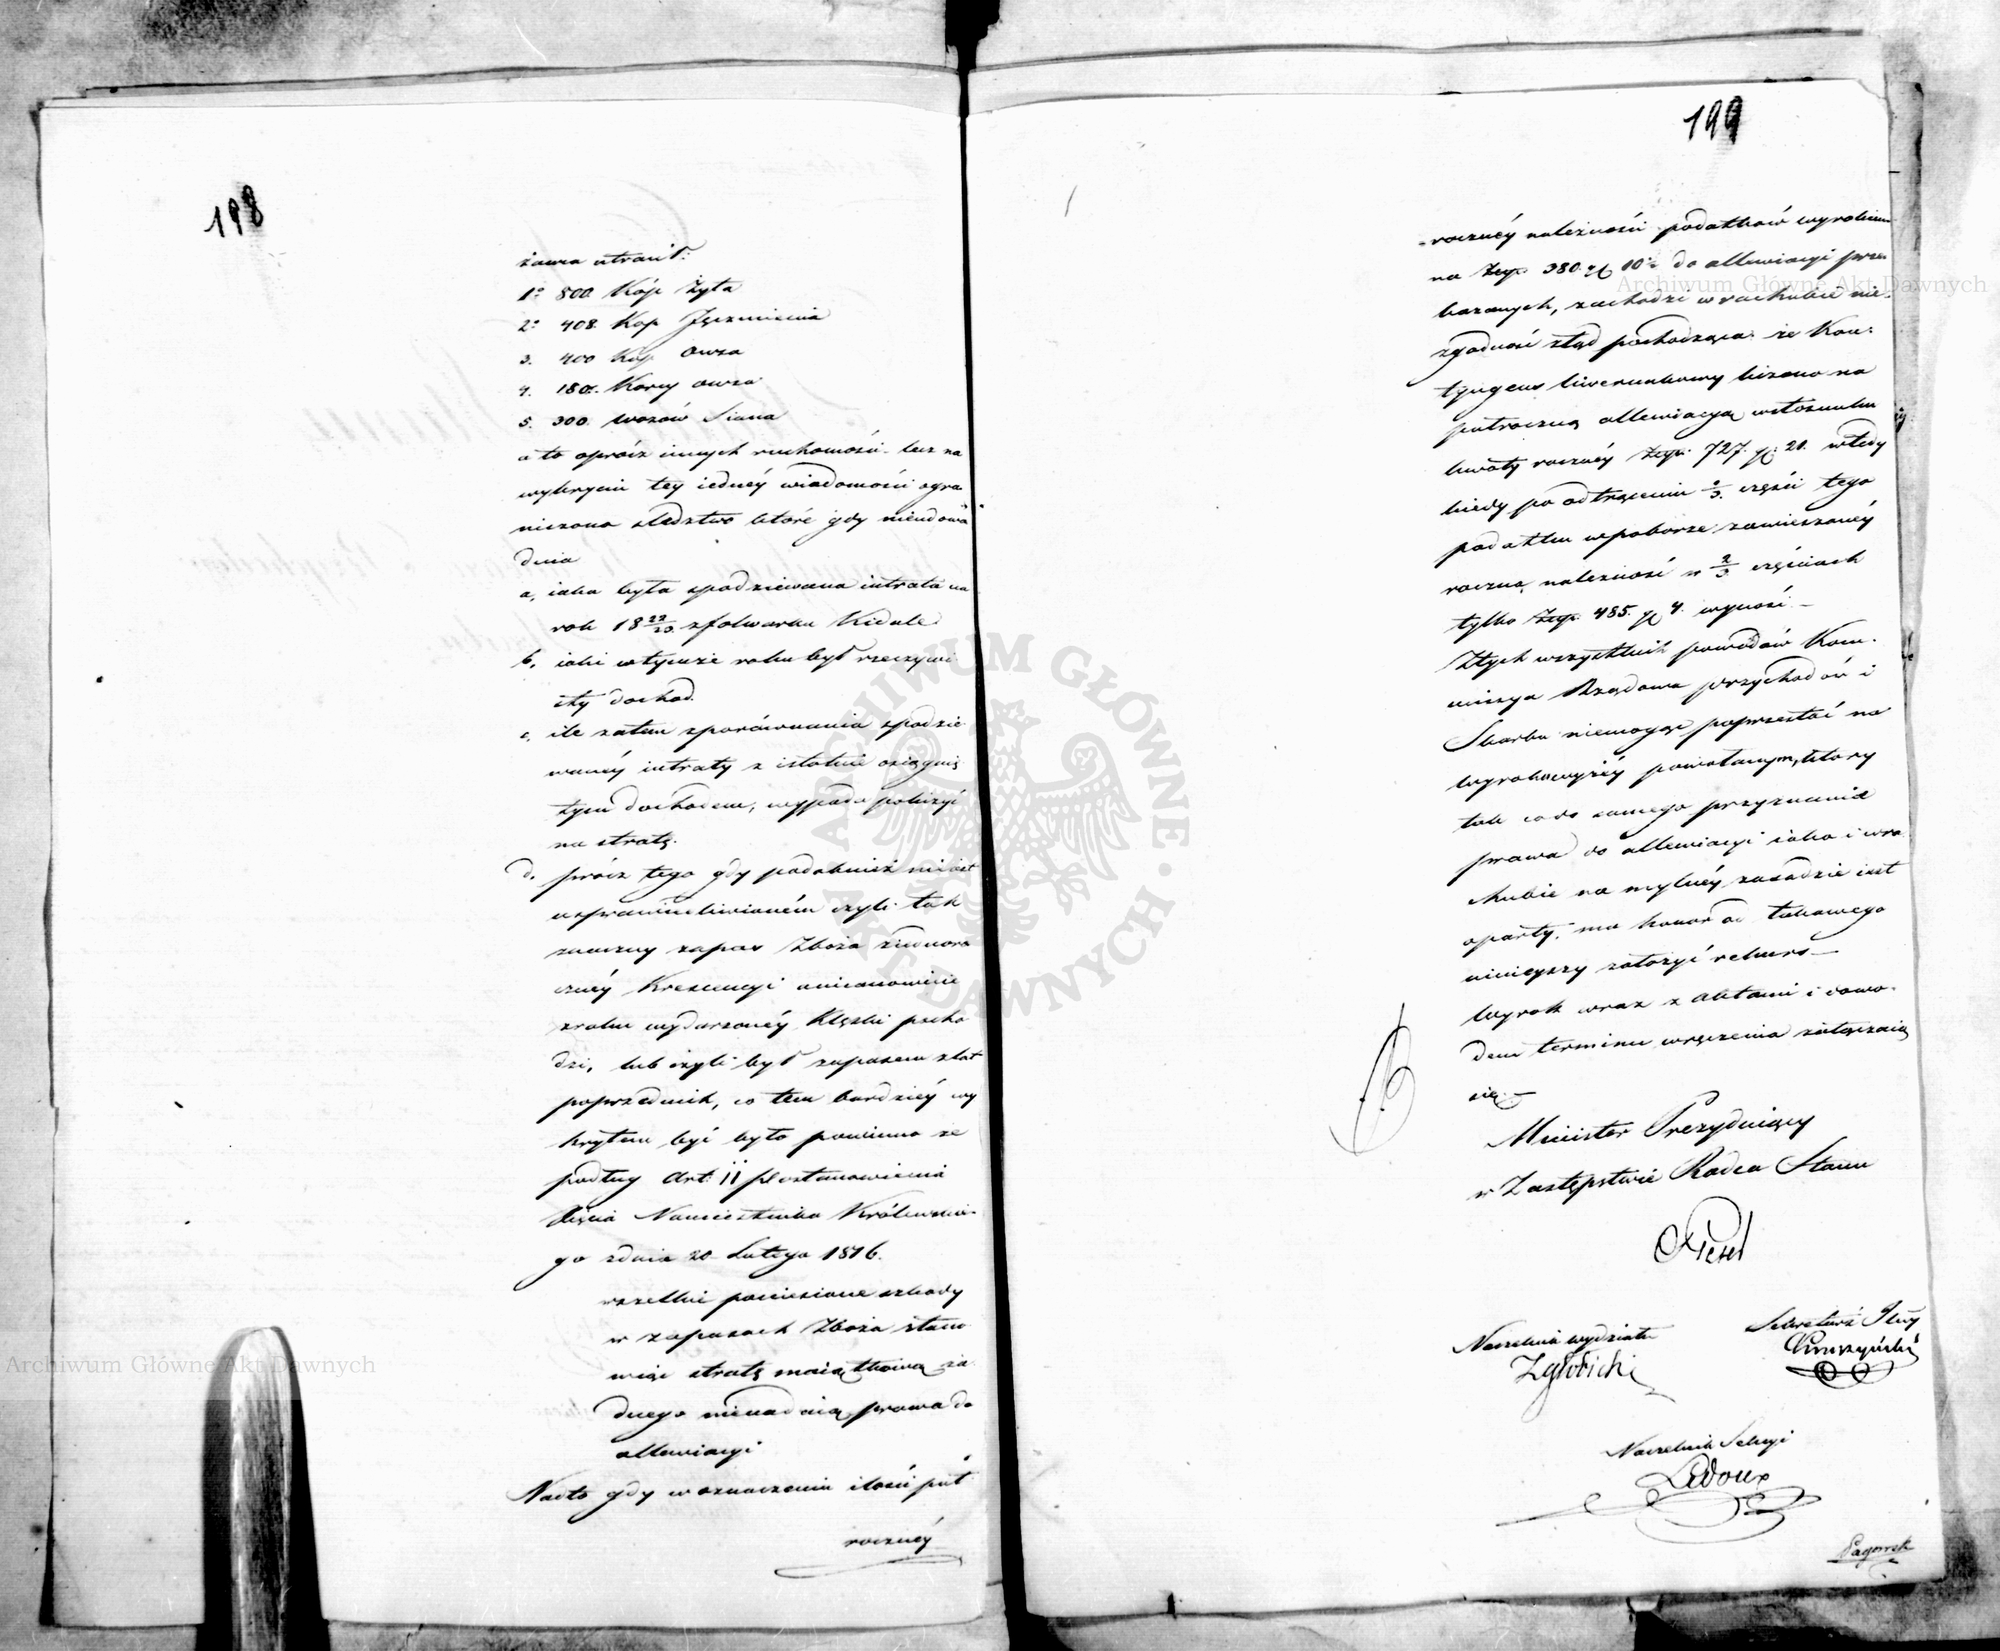 198
żawca utracił:
1º 800 Kóp Żyta
2º 408. Kop Jęczmienia
3. 400 Kóp Owsa
4. 180. Korcy owsa
5. 300. wozów Siana
a to oprócz innych ruchomości lecz na
wykryciu tey iedney wiadomości ogra
niczono sledztwo które gdy nieudowo
dnia
a, iaka była spodziewana intrata na
rok 18 22/23. z folwarku Kidule
b, iaki w tymże roku był rzeczywi
sty dochod.
c, ile zatem z porównania spodzie
wanéy intraty z istotnie osiągnię
tym dochodem, wypada policzyć
na stratę.
d. prócz tego gdy podobnież nie iest
usprawiedliwioném czyli tak
znaczny zapas Zboża z iednoro
cznéy Krescencyi a mianowicie
z roku wydarzonéy Klęski pocho
dzi, lub czyli był zapasem z lat
poprzednich, co tem bardziéy wy
krytem być było powinno że
podług Art: 11 postanowienia
Xięcia Namiestnika Królewskie-
go z dnia 20 Lutego 1816.
wszelkie poniesione szkody
w zapasach Zboża stano
wiąc stratę maiątkową ża
dnego nienadaią prawa do
allewiacyi
Nadto gdy w oznaczeniu ilości pół
rocznéy
199
rocznéy należności podatków wyrokiem
na Złp. 380. gr 10 do allewiacyi prze
kazanych, zachodzi w rachubie nie-
zgodność ztąd pochodząca: że Kon-
tyngens liwerunkowy liczono na
półroczną allewiacyą w stosunku
kwoty rocznéy Złp. 727. gr. 21. wtedy
kiedy po odtrąceniu części tego
podatku w poborze zawieszonéy
roczna należność w 2/3 częściach
tylko Złp. 485. gr 4. wynosi.—
Z tych wszystkich powodów Kom-
missya Rządowa Przychodów i
Skarbu niemogąc poprzestać na
Wyroku wyżéy powołanym, który
tak co do samego przyznania
prawa do allewiacyi iako i w ra
chubie na mylnéy zasadzie iest
oparty, ma honor od takowego
ninieyszy założyć rekurs—
Wyrok wraz z aktami i dowo-
dem terminu wręczenia załączaią
się.—
Minister Prezyduiący
w Zastępstwie Radca Stanu
Naczelnik wydziału
Sekretarz Jlny
Naczelnik Sekcyi
Ledoux
Archiwum Główne Akt Dawnych
Archiwum Główne Akt Dawnych
ARCHIWUM GŁÓWNE AKT DAWNYCH